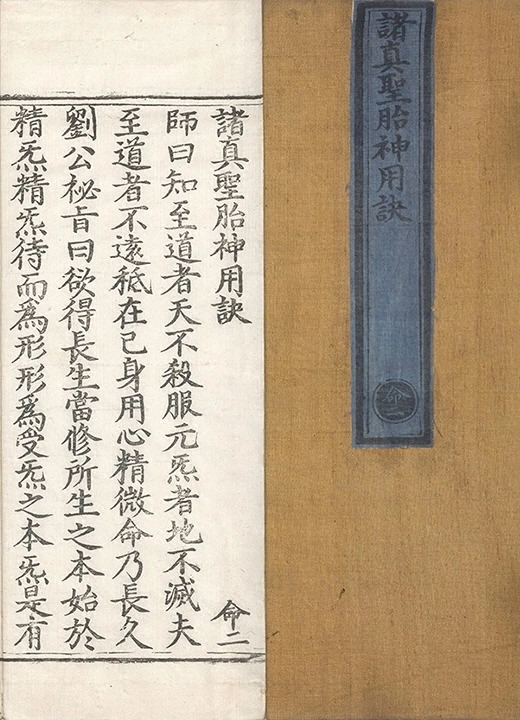 諸真聖胎神用訣
命二
諸真聖胎神用訣
命二
師曰知至道者天不殺服元炁者地不滅夫
至道者不遠秪在已身用心精微命乃長久
劉公祕旨曰欲得長生當修所生之本始於
精炁精炁待而為形形為受炁之本炁是有